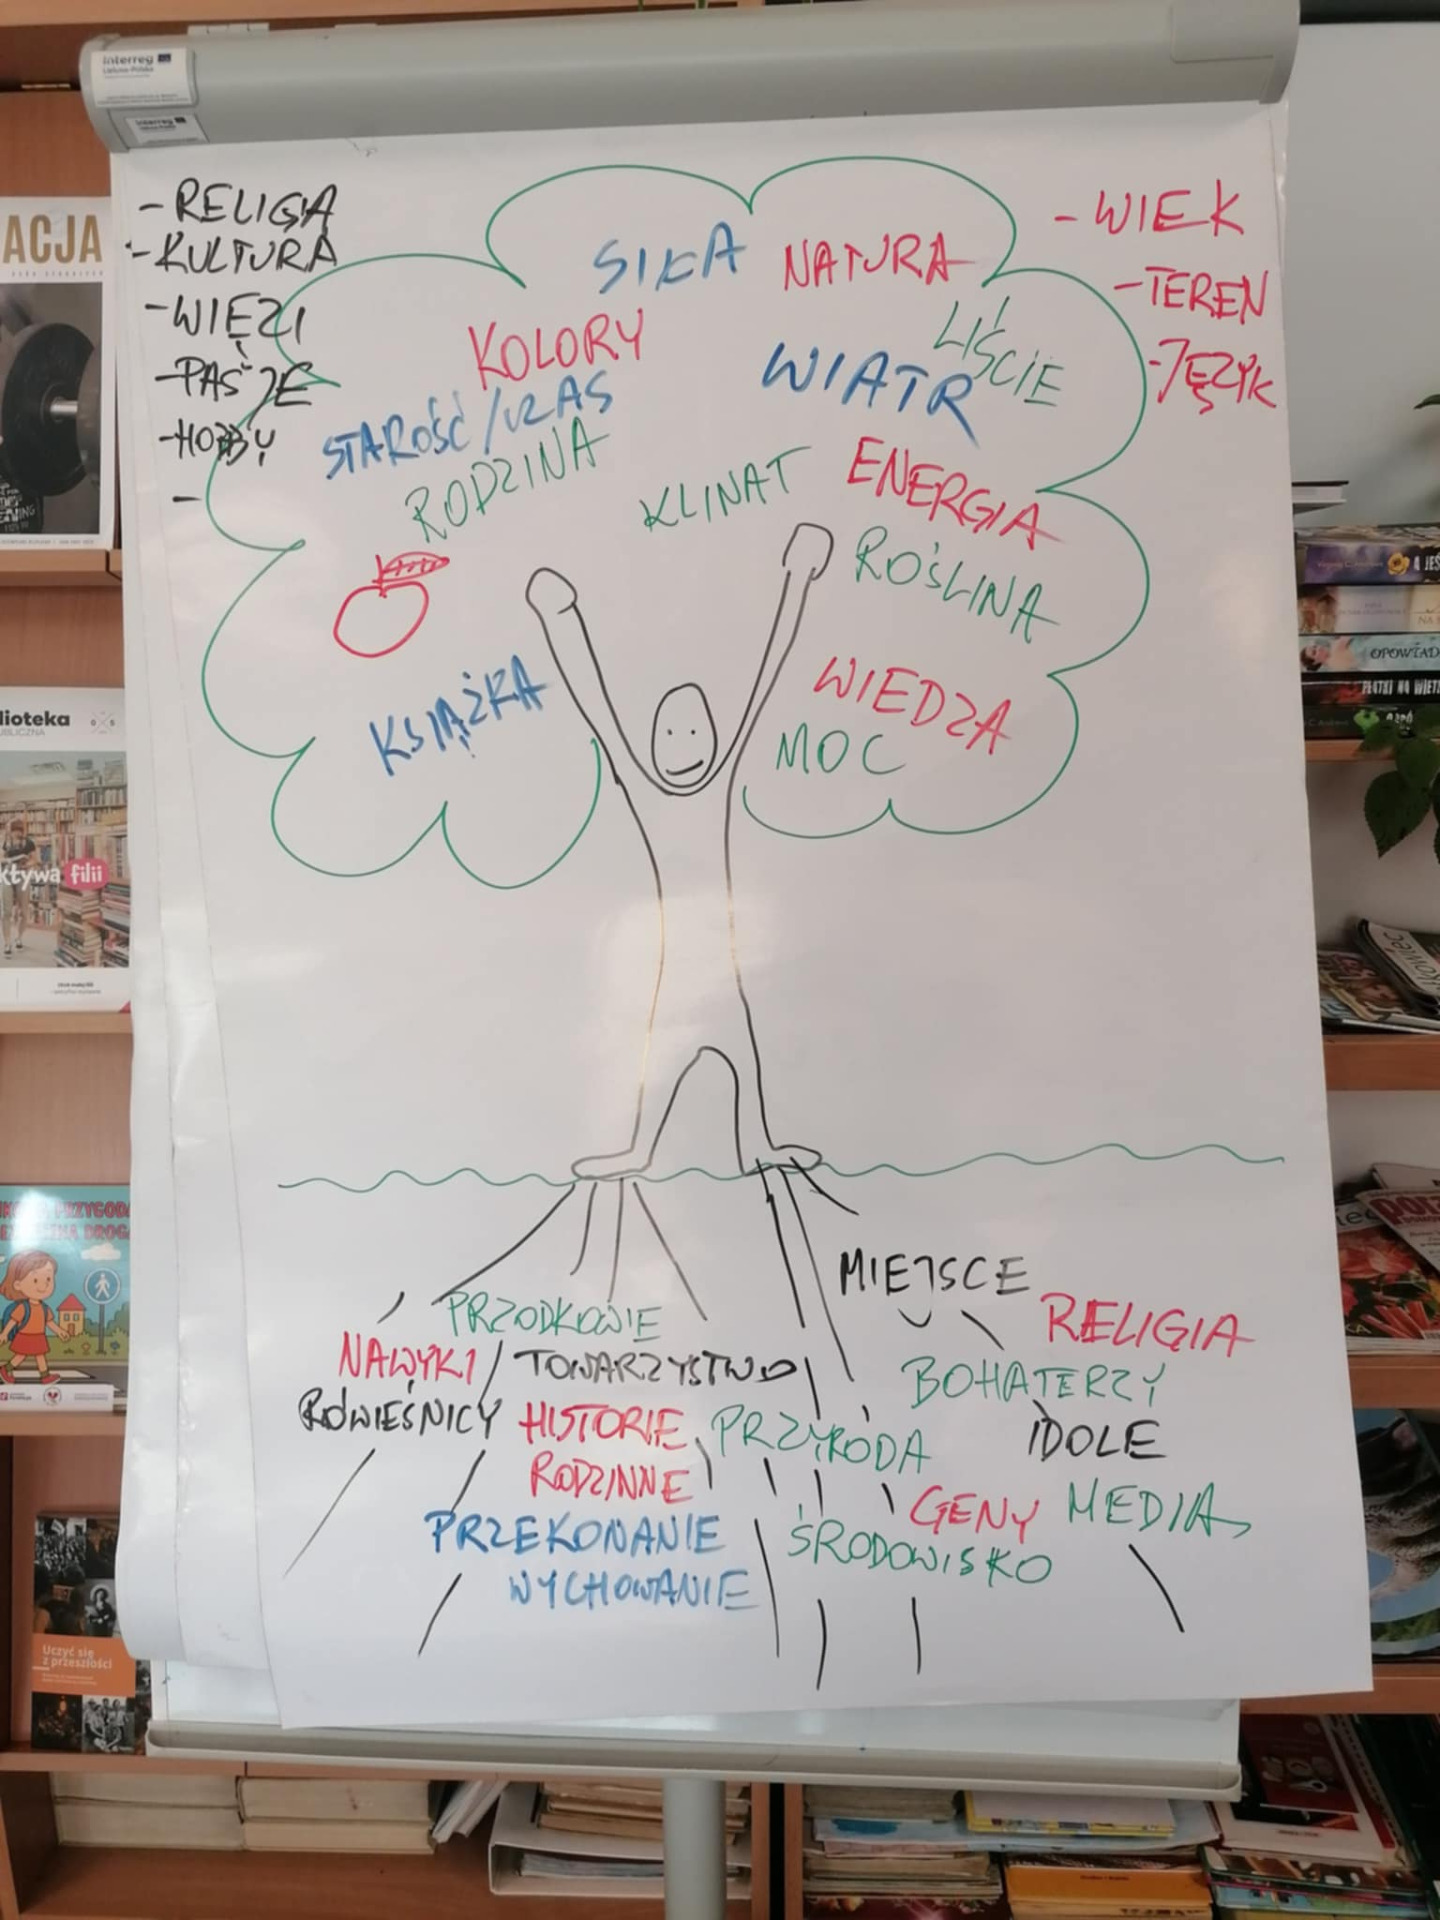 Interreg
Lietuva-Polska
Interreg
- RELIGIA
- KULTURA
- WIĘZI
- PASJE
- HOBBY
-
- WIEK
- TEREN
- JĘZYK
SIŁA
NATURA
KOLORY
LIŚCIE
WIATR
STAROŚĆ/CZAS
RODZINA
KLINAT
ENERGIA
ROŚLINA
KSIĄŻKA
WIEDZA
MOC
MIEJSCE
PRZODKOWIE
RELIGIA
NAWYKI
TOWARZYSTWO
BOHATERZY
RÓWIEŚNICY
HISTORIE
RODZINNE
PRZYRODA
IDOLE
GENY
MEDIA
PRZEKONANIE
ŚRODOWISKO
WYCHOWANIE
ACJA
lioteka
UBLICZNA
ktywa filii
PRZYGODA
DROGA
Uczyć się
z przeszłości
OPOWIAD